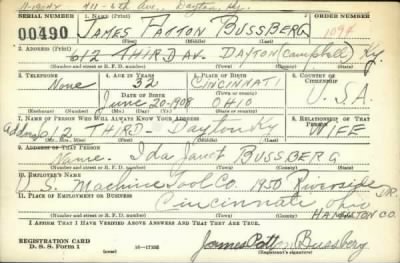 11-13-42 411-6th Ave., Dayton, Ky.
SERIAL NUMBER 1. NAME (Print) ORDER NUMBER
00490 JAMES PATTON BUSSBERG 1094
(First) (Middle) (Last)
2. ADDRESS (Print)
612 THIRD AV. DAYTON (Campbell) Ky.
(Number and street or R. F. D. number) (Town) (County) (State)
3. TELEPHONE 4. AGE IN YEARS 5. PLACE OF BIRTH 6. COUNTRY OF CITIZENSHIP
None 32 CINCINNATI
DATE OF BIRTH (Town or county)
June-20-1908 OHIO U.S.A.
(Exchange) (Number) (Mo.) (Day) (Yr.) (State or country)
7. NAME OF PERSON WHO WILL ALWAYS KNOW YOUR ADDRESS 8. RELATIONSHIP OF THAT PERSON
Address 612 THIRD - Dayton Ky WIFE
(Mr., Mrs., Miss) (First) (Middle) (Last)
9. ADDRESS OF THAT PERSON
Name. Ida Janet BUSSBERG
(Number and street or R. F. D. number) (Town) (County) (State)
10. EMPLOYER'S NAME
U.S. Machine Tool Co. 1950 Riverside DR.
11. PLACE OF EMPLOYMENT OR BUSINESS
Cincinnati Ohio
HAMILTON CO.
(Number and street or R. F. D. number) (Town) (County) (State)
I AFFIRM THAT I HAVE VERIFIED ABOVE ANSWERS AND THAT THEY ARE TRUE.
REGISTRATION CARD
D. S. S. Form 1 16-17105 James Patton Bussberg
(Registrant's signature)